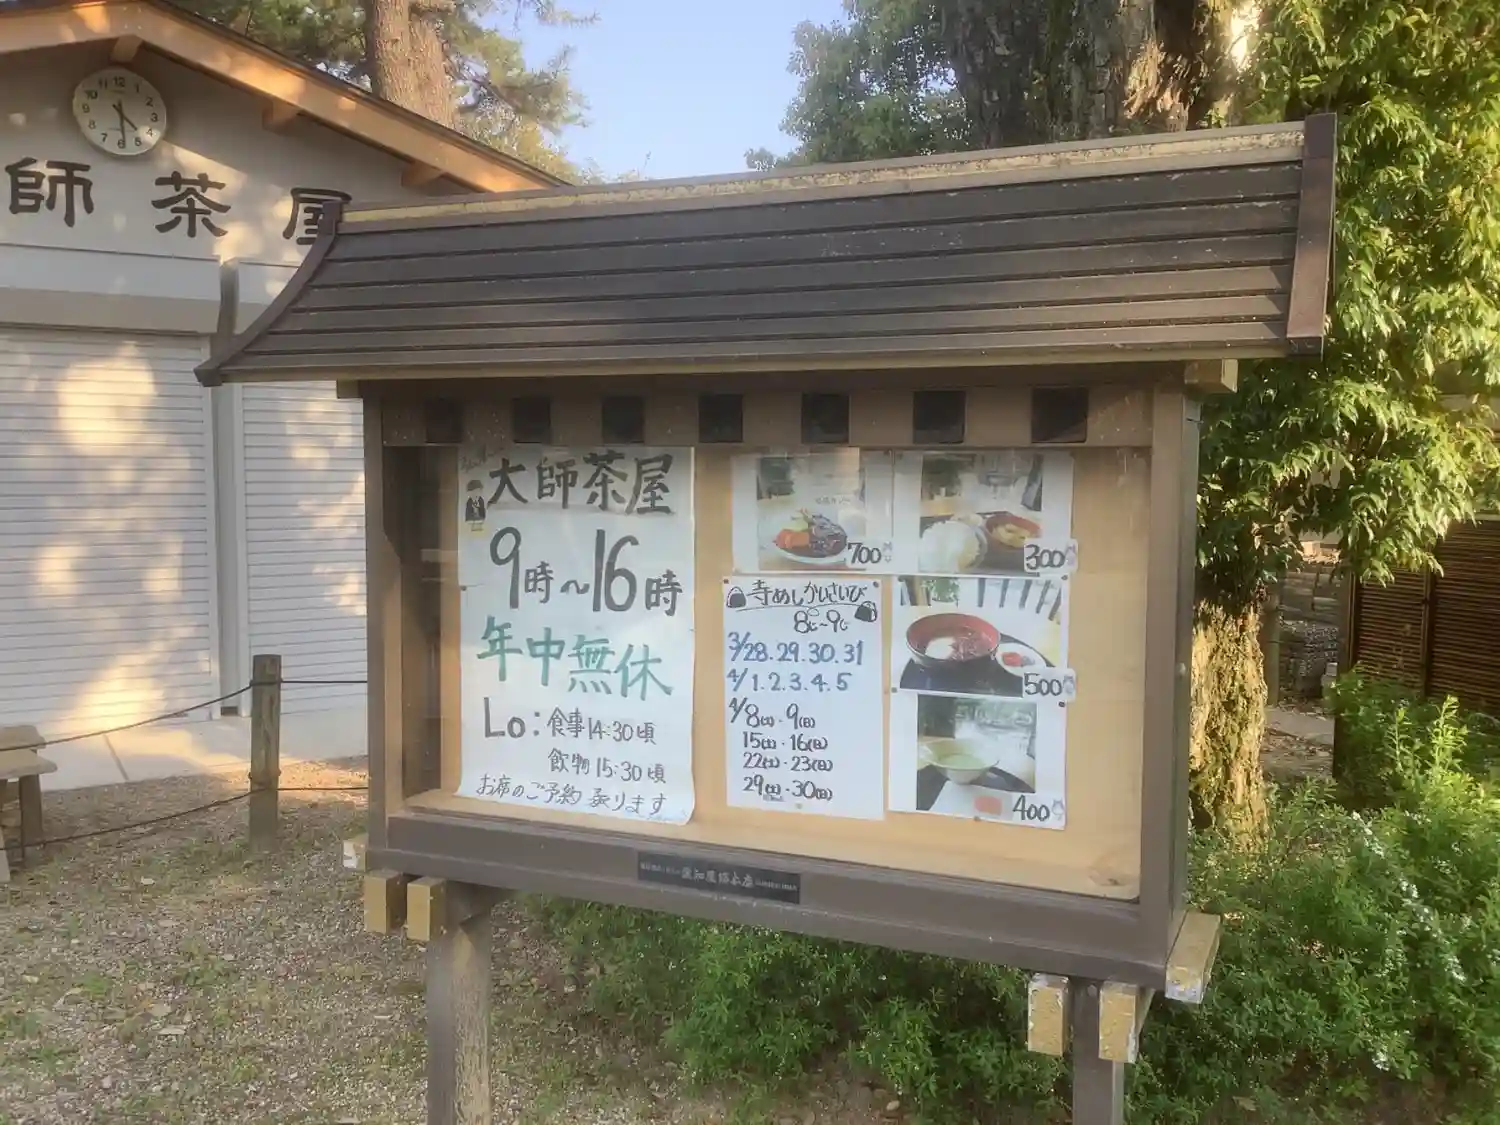 師茶屋
大師茶屋
9時～16時
年中無休
Lo:食事14:30頃
飲物15:30頃
お席のご予約承ります
700
300
500
400
寺めしかいさいび
8じ～9じ
3/28.29.30.31
4/1.2.3.4.5
4/8(土)・9(日)
15(土)・16(日)
22(土)・23(日)
29(土)・30(日)
11 12 1 2 3 4 5 6 7 8 9 10